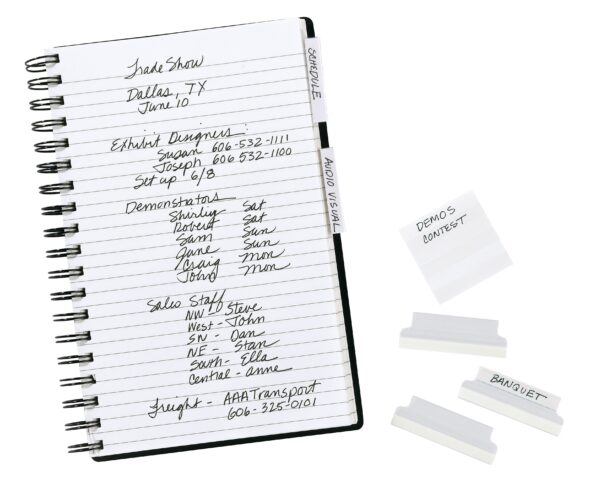 Trade Show
Dallas, TX
June 10
Exhibit Designers:
Susan 606-532-1111
Joseph 606 532-1100
Set up 6/8
Demonstrators
Shirley Sat
Robert Sat
Sam Sun
Jane Sun
Craig Mon
John Mon
Sales Staff
NW - Steve
West - John
SN - Dan
NE - Stan
South - Ella
Central - Anne
Freight - AAA Transport
606-325-0101
SCHEDULE
AUDIO VISUAL
DEMOS
CONTEST
BANQUET